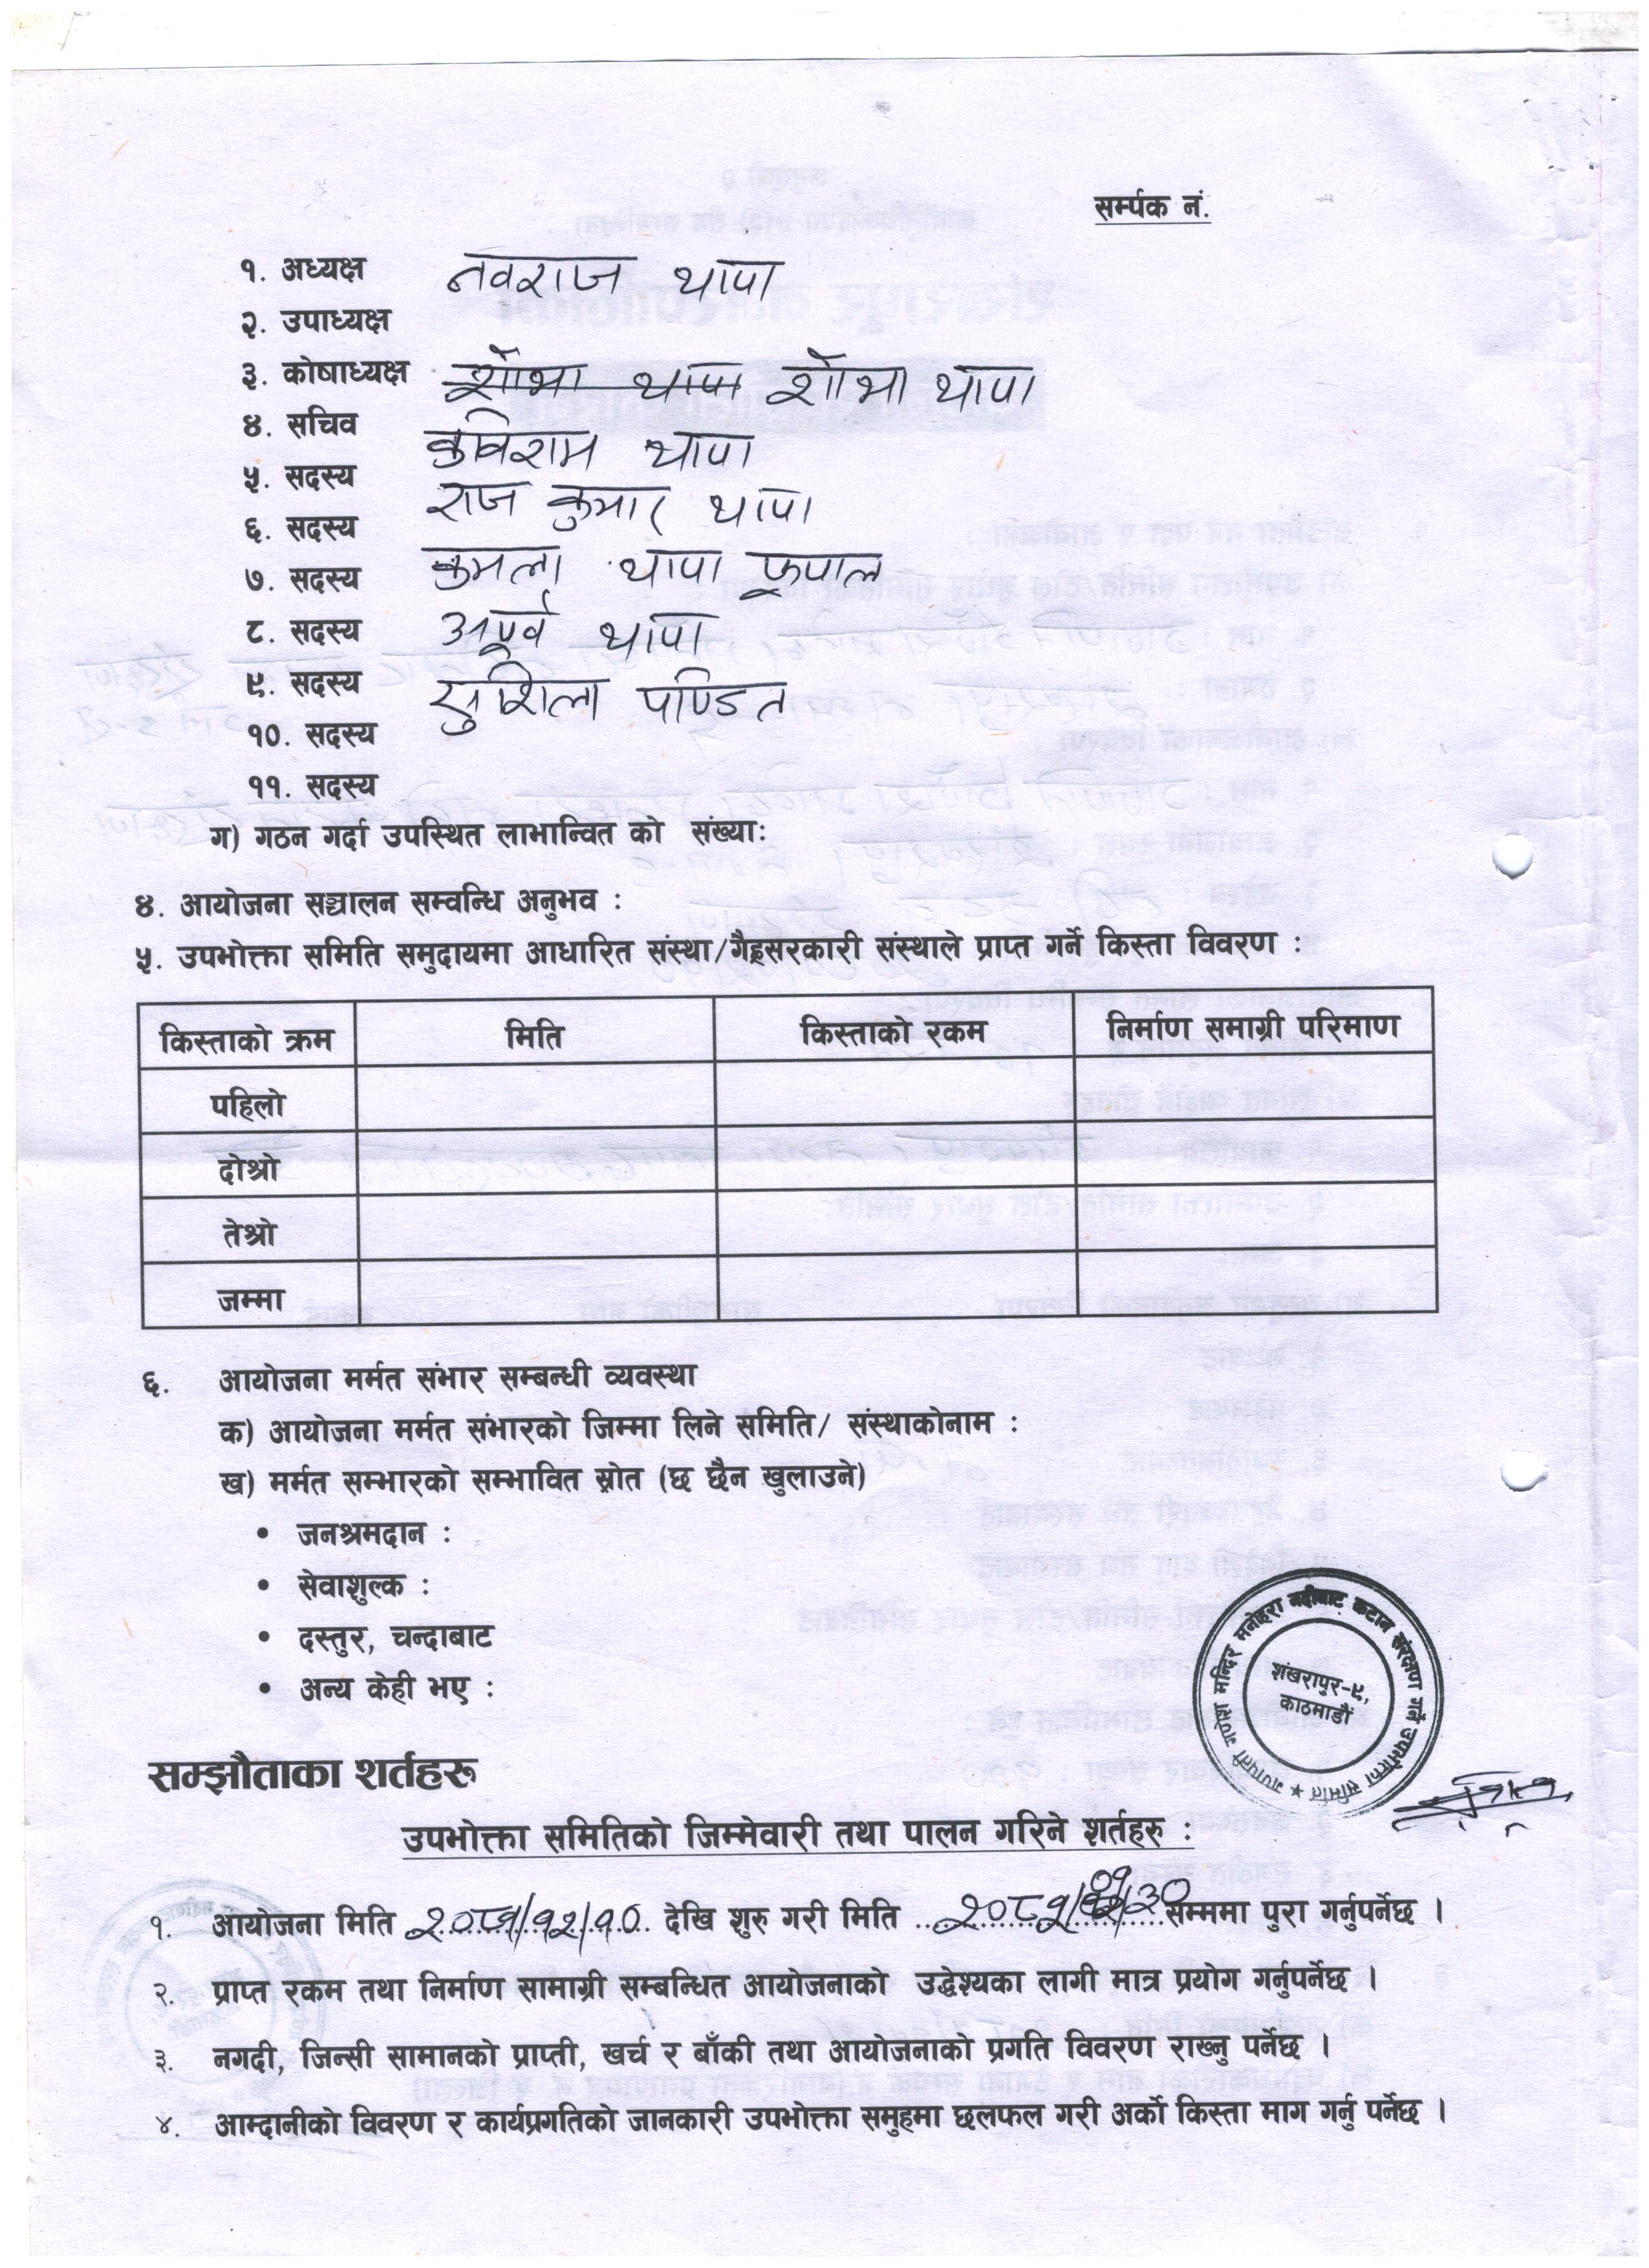 सर्म्पक नं.
१. अध्यक्ष नवराज थापा
२. उपाध्यक्ष
३. कोषाध्यक्ष शोभा थापा शोभा थापा
४. सचिव कविराम थापा
५. सदस्य राज कुमार थापा
६. सदस्य
७. सदस्य कमला थापा फूपाल
८. सदस्य अपूर्व थापा
९. सदस्य सुशिला पण्डित
१०. सदस्य
११. सदस्य
ग) गठन गर्दा उपस्थित लाभान्वित को संख्याः
४. आयोजना सञ्चालन सम्वन्धि अनुभव :
५. उपभोक्ता समिति समुदायमा आधारित संस्था/गैह्रसरकारी संस्थाले प्राप्त गर्ने किस्ता विवरण :
किस्ताको क्रम मिति किस्ताको रकम निर्माण समाग्री परिमाण
पहिलो
दोश्रो
तेश्रो
जम्मा
६. आयोजना मर्मत संभार सम्बन्धी व्यवस्था
क) आयोजना मर्मत संभारको जिम्मा लिने समिति/ संस्थाकोनाम :
ख) मर्मत सम्भारको सम्भावित स्रोत (छ छैन खुलाउने)
• जनश्रमदान :
• सेवाशुल्क :
• दस्तुर, चन्दाबाट
• अन्य केही भए :
गणपती गणेश मन्दिर मनोहरा नदीबाट कटान संरक्षण गर्ने उपभोक्ता समिति ★
शंखरापुर-९,
काठमाडौं
सम्झौताका शर्तहरू
उपभोक्ता समितिको जिम्मेवारी तथा पालन गरिने शर्तहरु :
१. आयोजना मिति २०८१/१२/१० देखि शुरु गरी मिति २०८२/०१/३० सम्ममा पुरा गर्नुपर्नेछ ।
२. प्राप्त रकम तथा निर्माण सामाग्री सम्बन्धित आयोजनाको उद्धेश्यका लागी मात्र प्रयोग गर्नुपर्नेछ ।
३. नगदी, जिन्सी सामानको प्राप्ती, खर्च र बाँकी तथा आयोजनाको प्रगति विवरण राख्नु पर्नेछ ।
४. आम्दानीको विवरण र कार्यप्रगतिको जानकारी उपभोक्ता समुहमा छलफल गरी अर्को किस्ता माग गर्नु पर्नेछ ।